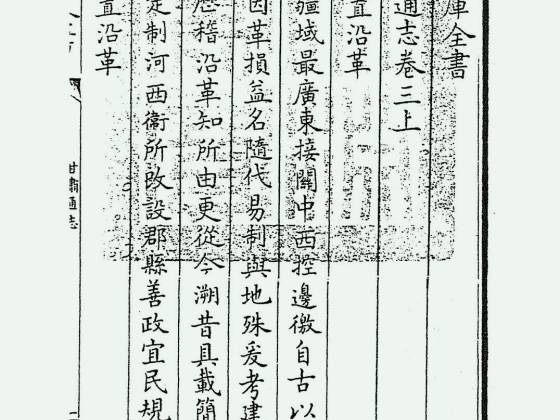 庫全書
通志卷三上
置沿革
疆域最廣東接關中西控邊徼自古以
因革損益名隨代易制與地殊爰考建
歷稽沿革知所由更從今溯昔具載簡
定制河西衛所改設郡縣善政宜民規
置沿革
甘肅通志